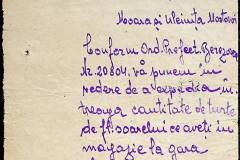 Moara și Uleinița Mostovoi
Conform Ord. Prefect. Berezovca
Nr. 20804. vă punem în
vedere de a "expedia" în-
treaga cantitate de turte
de fl. soarelui ce aveți în
magazie la gara